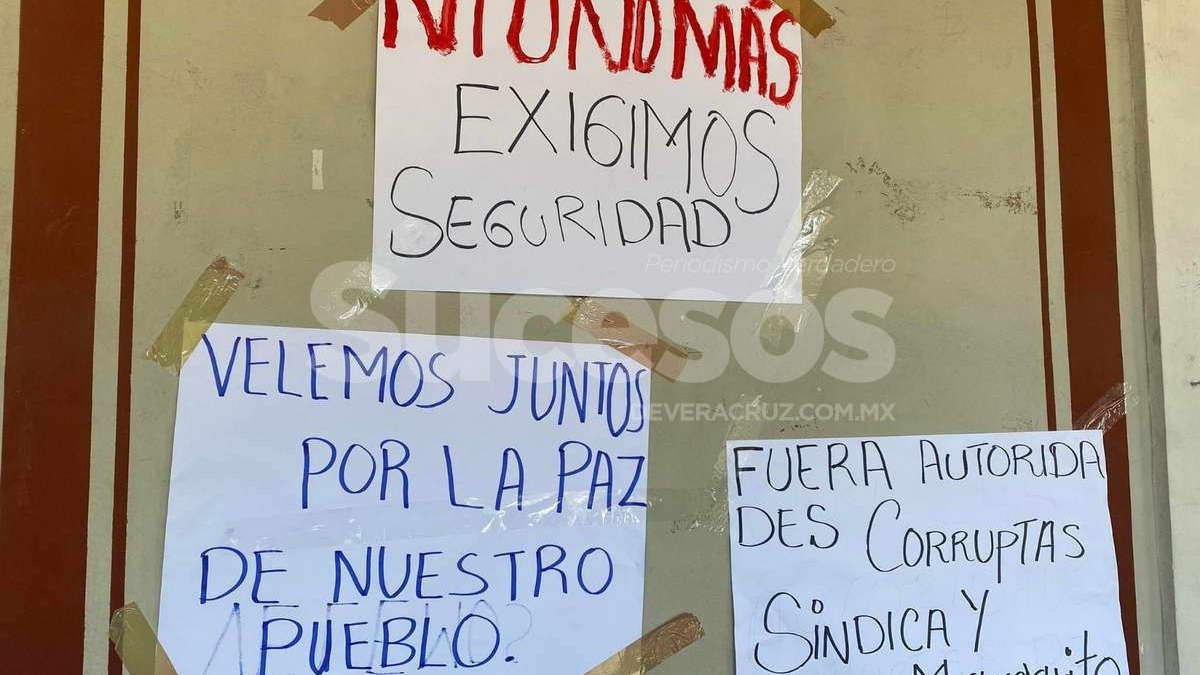 NI UNO MÁS
EXIGIMOS
SEGURIDAD
Periodismo Verdadero
Sucesos
DEVERACRUZ.COM.MX
VELEMOS JUNTOS
POR LA PAZ
DE NUESTRO
PUEBLO.
FUERA AUTORIDA
DES CORRUPTAS
SINDICA Y